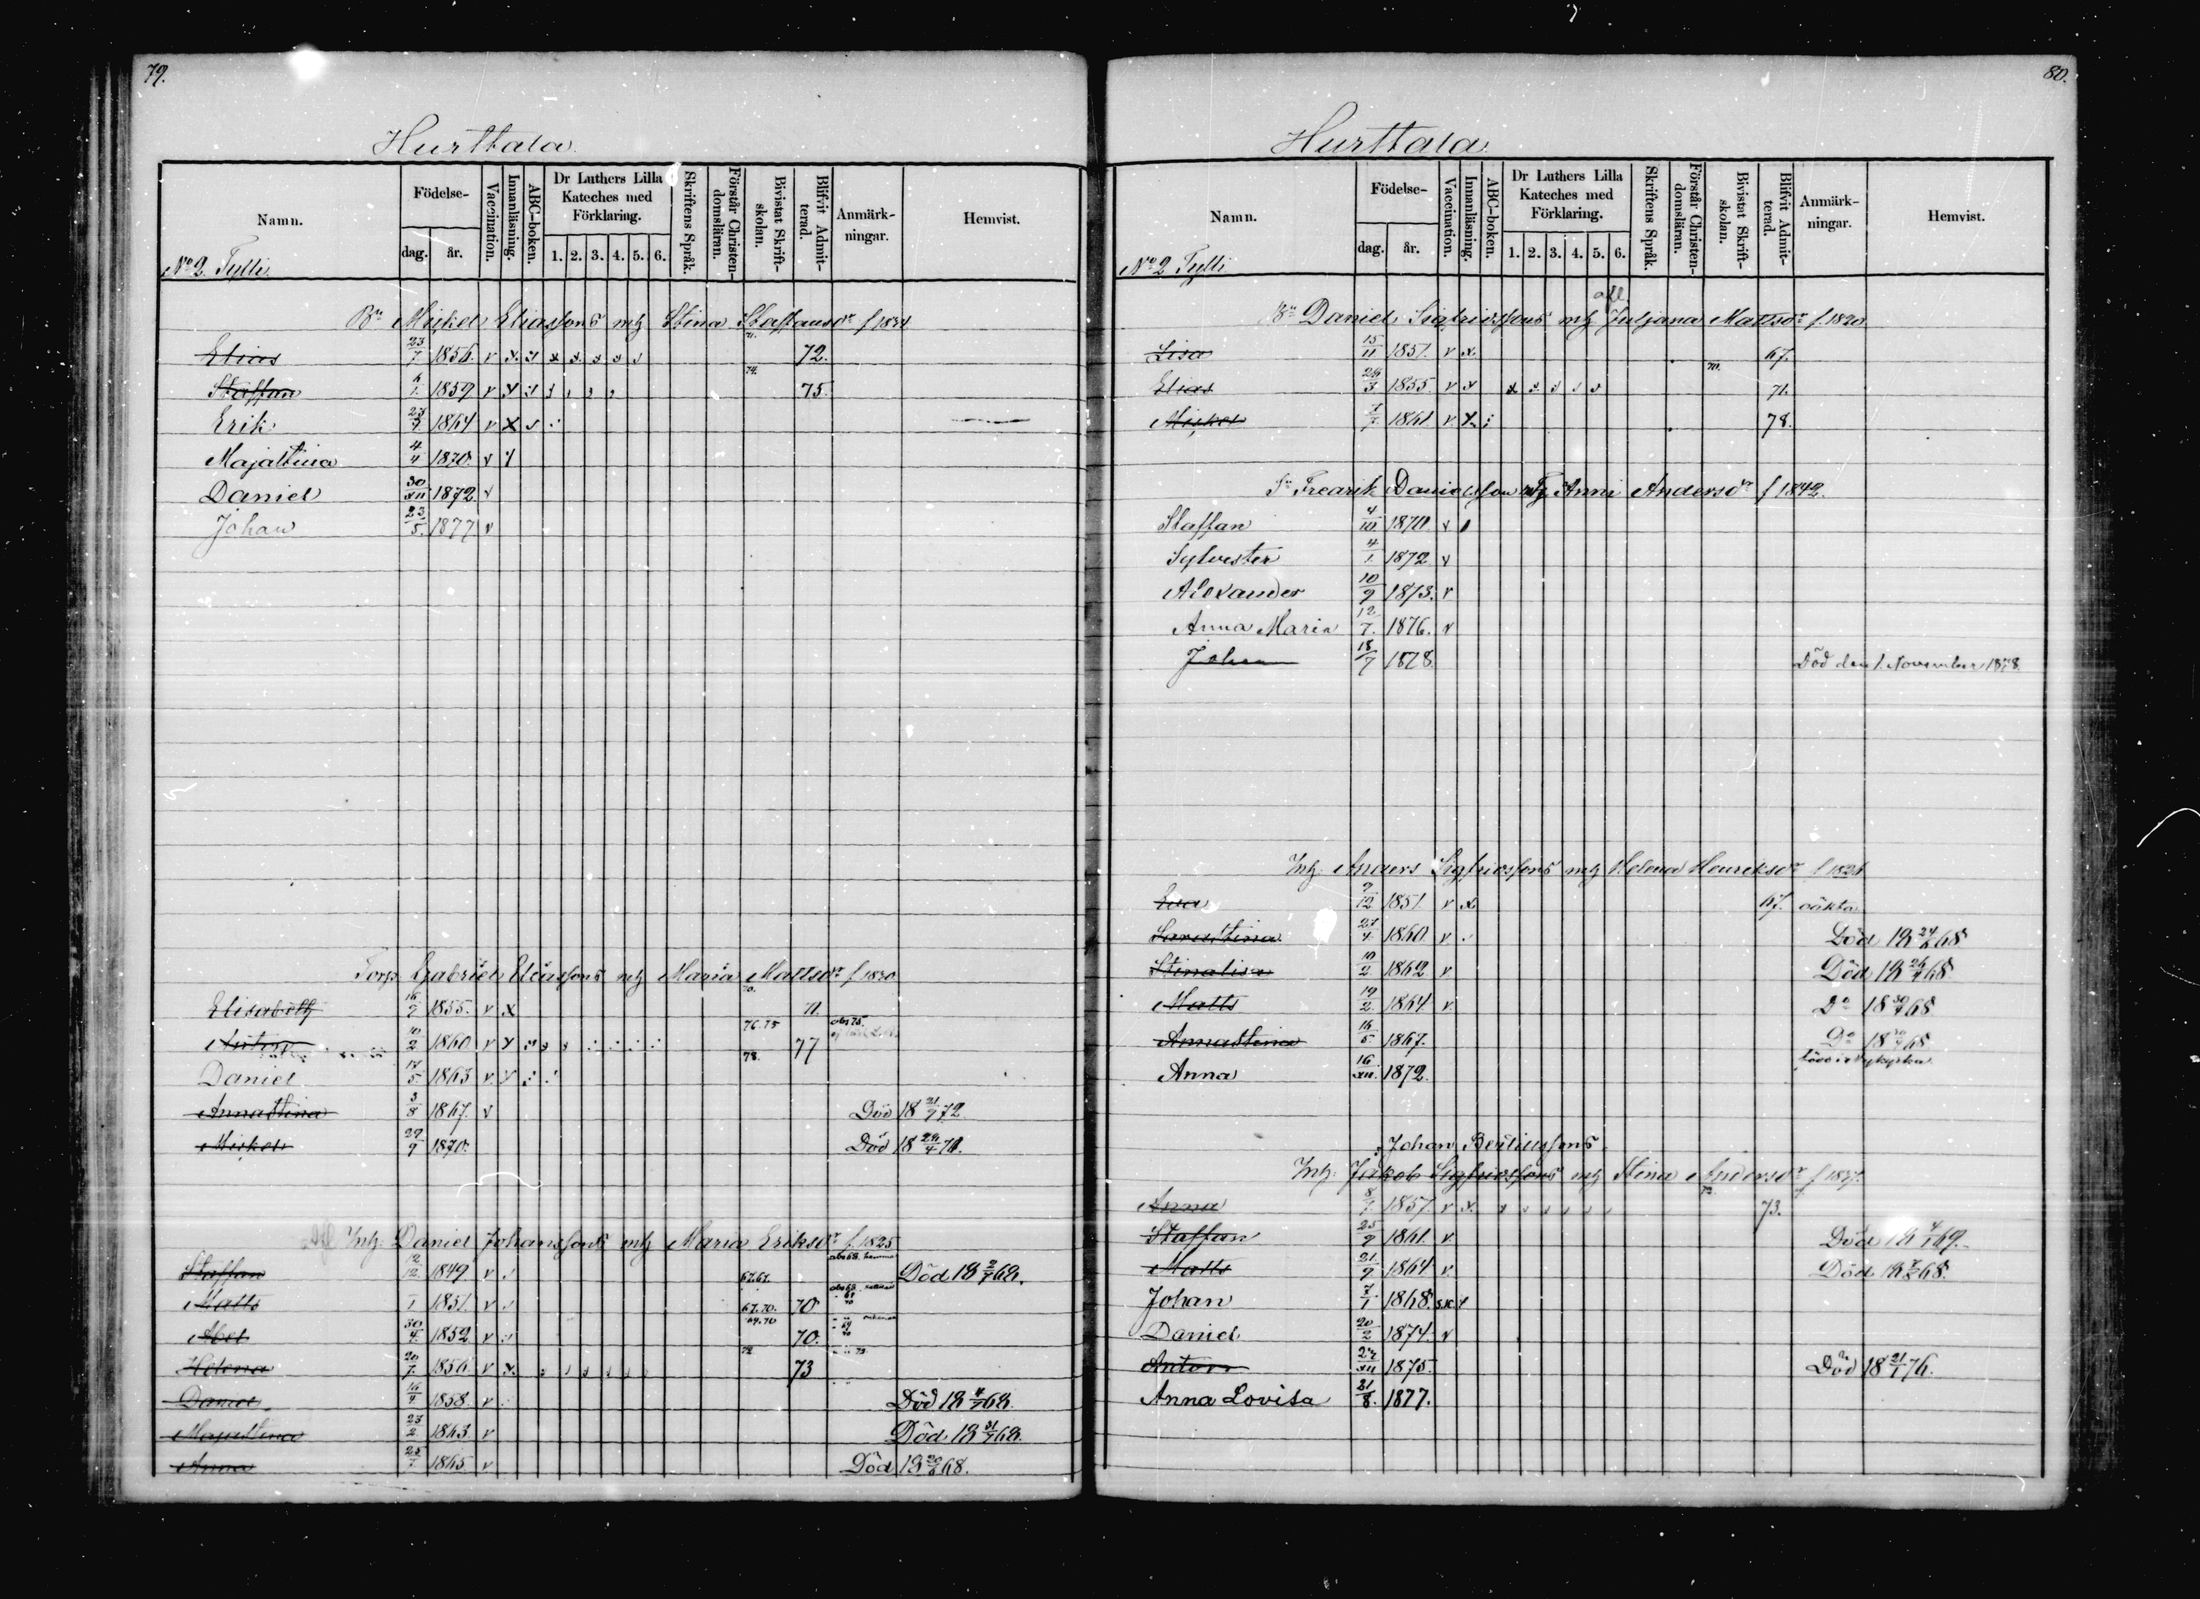 79.
Hurttala
Namn.
Födelse-
dag. år.
Vaccination.
Innanläsning.
ABC-boken.
Dr Luthers Lilla Kateches med Förklaring.
1. 2. 3. 4. 5. 6.
Skriftens Språk.
Förstår Christendomsläran.
Bivistat Skriftskolan.
Blifvit Admitterad.
Anmärkningar.
Hemvist.
No 2 Tylli
Bn Mickel Eliassons mh Stina Staffansdr f 1834
Elias 23/7 1856. v x 71. 72.
Staffan 6/1 1859 v x 74. 75.
Erik 1864 v x
Majastina 4/4 1870. v
Daniel 30/XII 1872 v
Johan 23/5. 1877. v
Torp. Gabriel Eliassons mh Maria Mattsdr f. 1830
Elisabeth 16/9 1855. v x 70. 71.
10/2 1860 v x 76. 75 77
Daniel 17/5 1863 v 78.
Annastina 3/8 1867. v Död 18 21/7 72
Mickel 29/9 1870. Död 18 24/4 71.
Inh: Daniel Johanssons mh Maria Eriksdr f. 1825
Staffan 12/12 1849 v 67. Död 18 2/7 68.
Matts 1 1851. v 67. 70. 70
Abel 30/4. 1852 v 69. 70 70.
Helena 20/7. 1856 v x. 72 73
Daniel 16/4 1858. v Död 18 4/7 68.
Majastina 23/2 1863. v Död 18 31/7 68.
Anna 25/7 1865 v Död 18 20/6 68.
80.
Hurttala.
Namn.
Födelse-
dag. år.
Vaccination.
Innanläsning.
ABC-boken.
Dr Luthers Lilla Kateches med Förklaring.
1. 2. 3. 4. 5. 6.
Skriftens Språk.
Förstår Christendomsläran.
Bivistat Skriftskolan.
Blifvit Admitterad.
Anmärkningar.
Hemvist.
No 2 Tylli
afl.
Bn Daniel Sigfridssons mh Juljana Mattsdr f. 1820
Lisa 15/11 1851. v x. 67.
Elias 24/3 1855 v x 70. 71.
Mickel 7/7 1861 v x 78.
Sn Fredrik Danielsson mh Anni Andersdr f 1842.
Staffan 4/10 1870. v
Sylvester 4/1. 1872 v
Alexander 10/9 1873. v
Anna Maria 12/7. 1876. v
Johan 18/7 1878. Död den 1. November 1878.
Inh. Anders Sigfridssons mh Helena Henriksdr f 1826
Eva 9/12 1851. v x 67. oäkta
Sarastina 27/4 1860. v Död 18 24/6 68
Stinalisa 10/2 1862 v Död 18 26/4 68
Matts 19/2 1864. v Do 18 30/4 68
Annastina 16/5 1867. Do 18 68
Anna 16/XII. 1872.
Johan Bertilssons
Inh: Jakob Sigfridssons mh Stina Andersdr f 1837.
Anna 8/7 1857. v x. 72. 73.
Staffan 25/9 1861. v Död 18 4/1 69.
Matts 21/9 1864 v. Död 18 68.
Johan 7/1 1868.
Daniel 20/2 1874. v
Anton 27/XII 1875. Död 18 21/1 76.
Anna Lovisa 31/8. 1877.